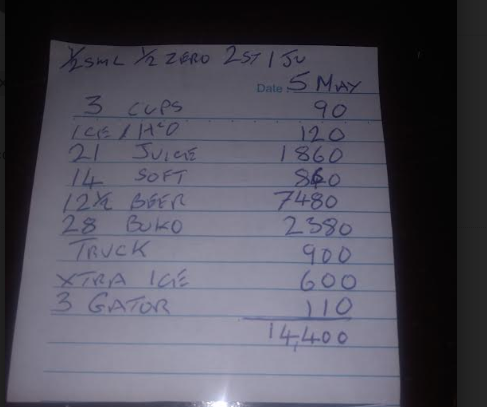 1/2 SML 1/2 ZERO 2ST 1 JU
Date 5 MAY
3 CUPS 90
ICE / H2O 120
21 JUICE 1860
14 SOFT 860
12 1/2 BEER 7480
28 BUKO 2380
TRUCK 900
XTRA ICE 600
3 GATOR 110
14,400